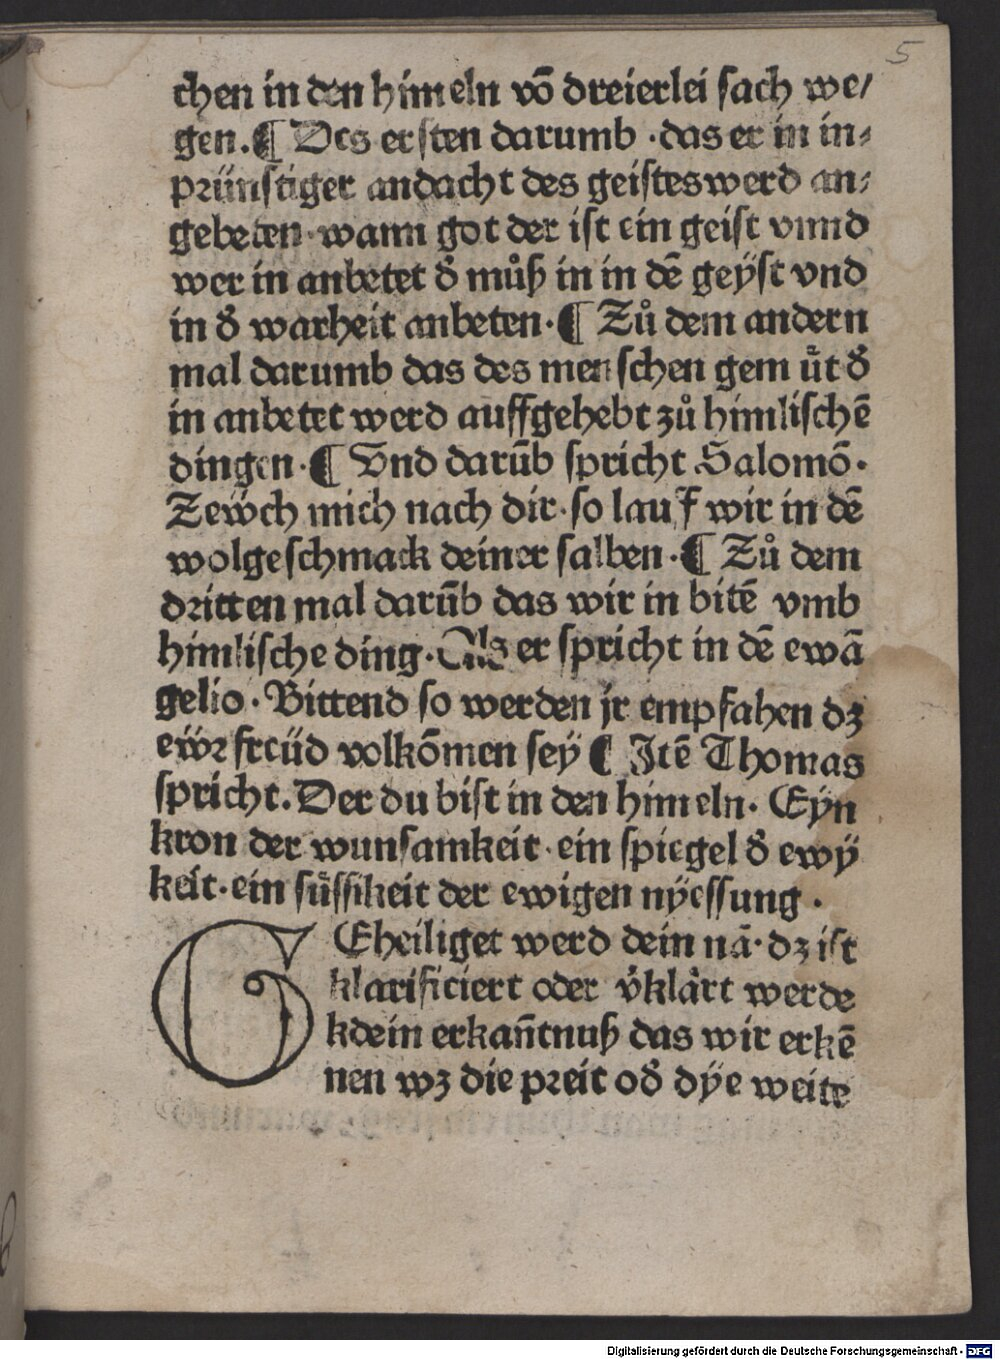 5
chen in den himeln vō dreierlei sach we/
gen.¶ Des ersten darumb ·das er in in⸗
prünstiger andacht des geistes werd an⸗
gebeten·wann got der ist ein geist vnnd
wer in anbetet d̕ můß in in dē geÿst vnd
in d̕ warheit anbeten·¶ Zů dem andern
mal darumb das des menschen gemüt d̕
in anbetet werd auffgehebt zů himlischē
dingen·¶ Vnd darūb spricht Salomō·
Zewch mich nach dir·so lauf wir in dē
wolgeschmack deiner salben·¶ Zů dem
dritten mal darūb das wir in bitē vmb
himlische ding·Als er spricht in dē ewā
gelio·Bittend so werden jr empfahen dꝫ
eẅr freüd volkōmen seÿ ¶ Itē Thomas
spricht.Der du bist in den himeln· Eÿn
kron der wunsamkeit·ein spiegel d̕ ewÿ
keit·ein süssikeit der ewigen nÿessung·
GEheiliget werd dein nā·dꝫ ist
klarificiert oder v̕klärt werde
kdein erkañtnuß das wir erkē
nen wꝫ die preit od̕ dÿe weite
Digitalisierung gefördert durch die Deutsche Forschungsgemeinschaft - DFG